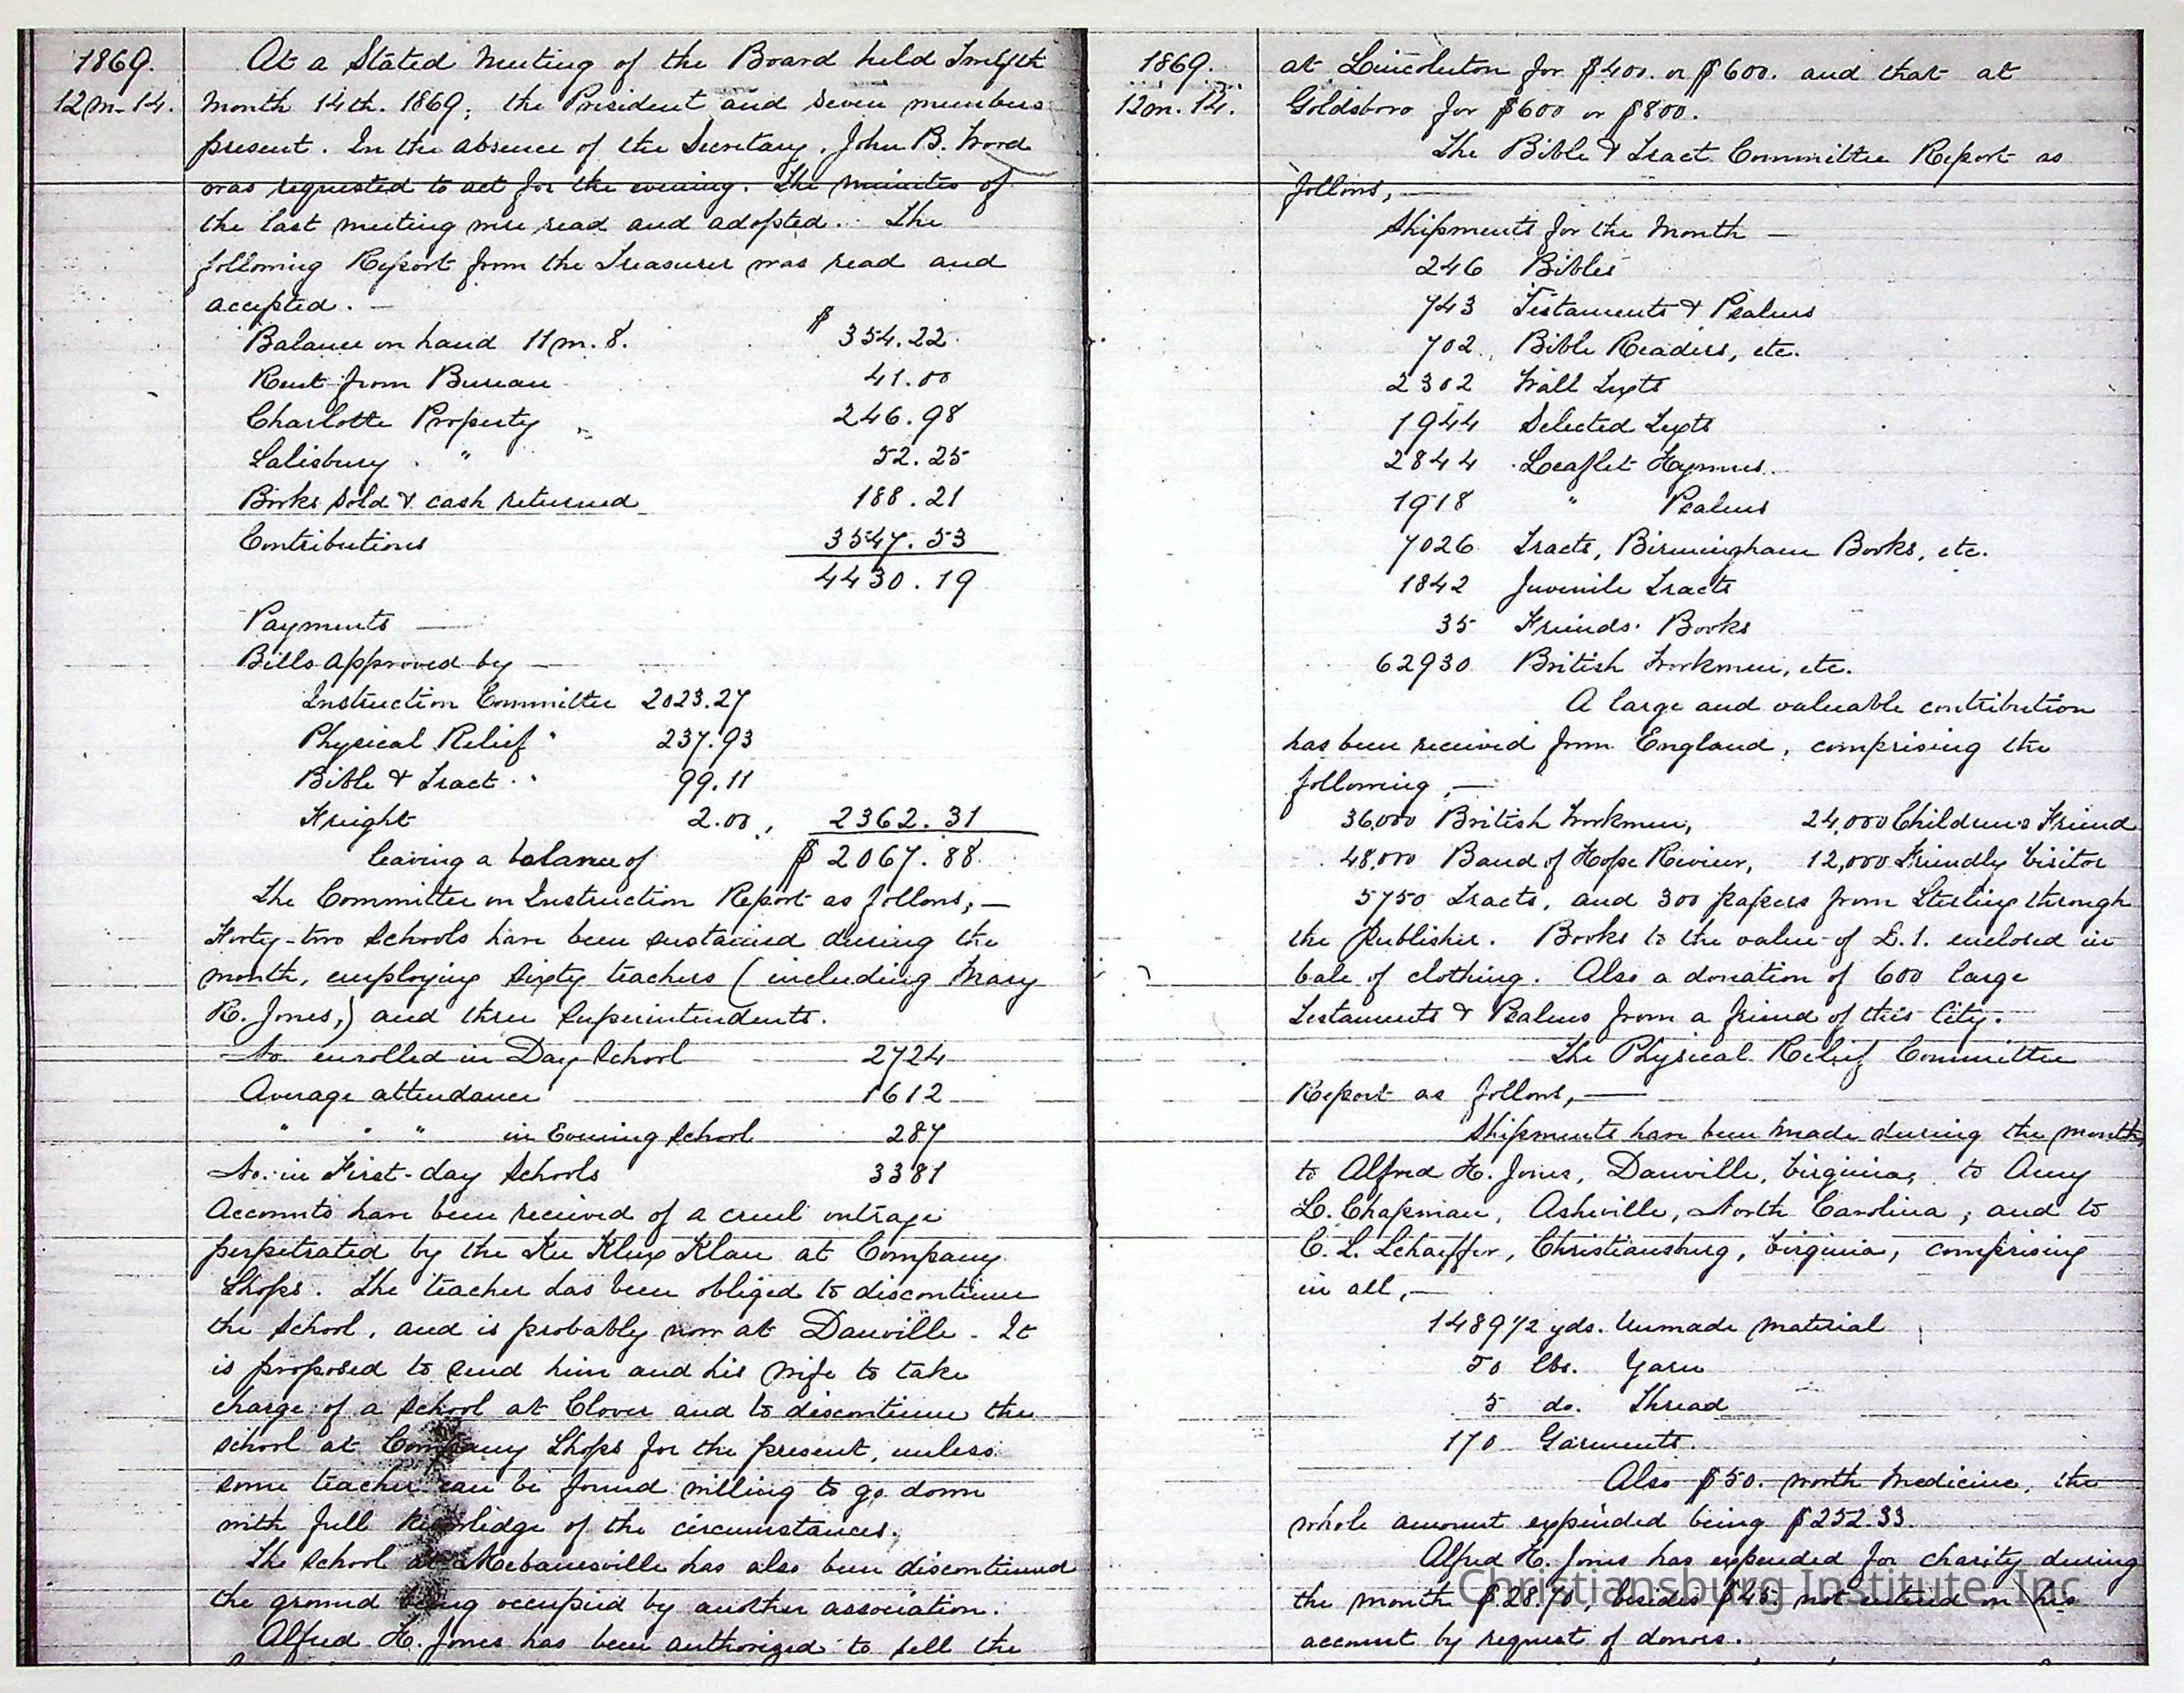 1869.
12m. 14.
At a Stated Meeting of the Board held Twelfth
Month 14th. 1869, the President and seven members
present. In the absence of the Secretary, John B. Wood
was requested to act for the evening. The minutes of
the last meeting were read and adopted. The
following Report from the Treasurer was read and
accepted. —
Balance on hand 11m. 8. $ 354.22
Rent from Bureau 41.00
Charlotte Property 246.98
Salisbury " 52.25
Books sold & cash returned 188.21
Contributions 3547.53
4430.19
Payments —
Bills approved by —
Instruction Committee 2023.27
Physical Relief " 237.93
Bible & Tract " 99.11
Freight 2.00, 2362.31
leaving a balance of $ 2067.88
The Committee on Instruction Report as follows; —
Forty-two Schools have been sustained during the
month, employing sixty teachers (including Mary
R. Jones,) and three Superintendents.
No. enrolled in Day School 2724
Average attendance 1612
" " " in Evening School 287
No. in First-day Schools 3381
Accounts have been received of a cruel outrage
perpetrated by the Ku Klux Klan at Company
Shops. The teacher has been obliged to discontinue
the School, and is probably now at Danville. It
is proposed to send him and his wife to take
charge of a School at Clover and to discontinue the
School at Company Shops for the present, unless
some teacher can be found willing to go down
with full knowledge of the circumstances.
The School at Mebanesville has also been discontinued
the ground being occupied by another association.
Alfred H. Jones has been authorized to sell the
1869.
12m. 14.
at Lincolnton for $400. or $600. and that at
Goldsboro for $600 or $800.
The Bible & Tract Committee Report as
follows, —
Shipments for the Month —
246 Bibles
743 Testaments & Psalms
702 Bible Readers, etc.
2302 Wall Texts
1944 Selected Texts
2844 Leaflet Hymns
1918 " Psalms
7026 Tracts, Birmingham Books, etc.
1842 Juvenile Tracts
35 Friends' Books
62930 British Workmen, etc.
A large and valuable contribution
has been received from England, comprising the
following, —
36,000 British Workmen, 24,000 Children's Friend
48,000 Band of Hope Review, 12,000 Friendly Visitor
5750 Tracts, and 300 papers from Sterling through
the Publisher. Books to the value of £.1. enclosed in
bale of clothing. Also a donation of 600 large
Testaments & Psalms from a friend of this City.
The Physical Relief Committee
Report as follows, —
Shipments have been made during the month,
to Alfred H. Jones, Danville, Virginia, to Amy
L. Chapman, Asheville, North Carolina; and to
C. L. Schaeffer, Christiansburg, Virginia; comprising
in all, —
1489 1/2 yds. Unmade material
50 lbs. Yarn
5 do. Thread
170 Garments.
Also $50. worth Medicine, the
whole amount expended being $252.33.
Alfred H. Jones has expended for charity during
the month $28.70, besides $45. not entered on his
account by request of donors.
Christiansburg Institute, Inc